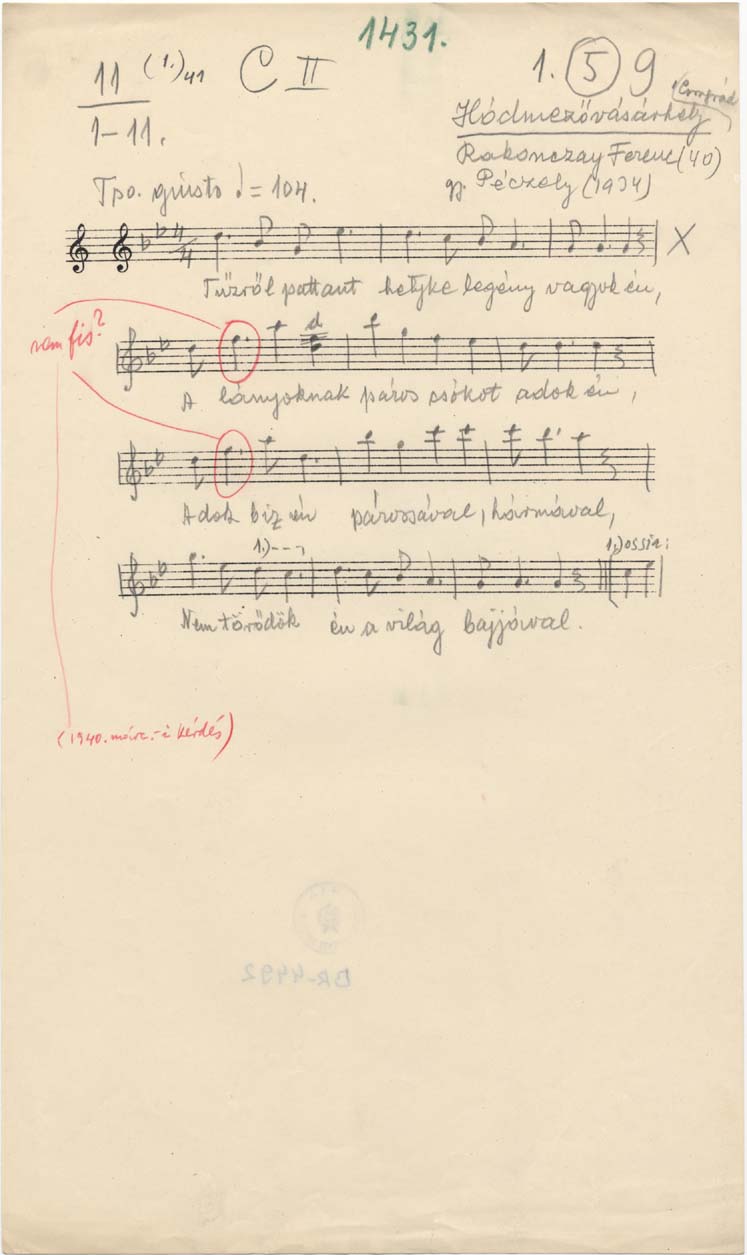 1431.
11 (1.) 41 C II 1. 5 9
1–11.
Hódmezővásárhely (Csongrád
Rakonczay Ferenc (40)
gy. Péczely (1934)
Tpo. giusto ♩= 104.
4/4
X
Tűzről pattant helyke legény vagyok én,
nem fis?
d
A lányoknak páros csókot adok én,
Adok biz én párossával, hármával,
1.)---¬ 1.) ossia:
Nem törődök én a világ bajjával.
(1940. márc.-i kérdés)
BR-4492